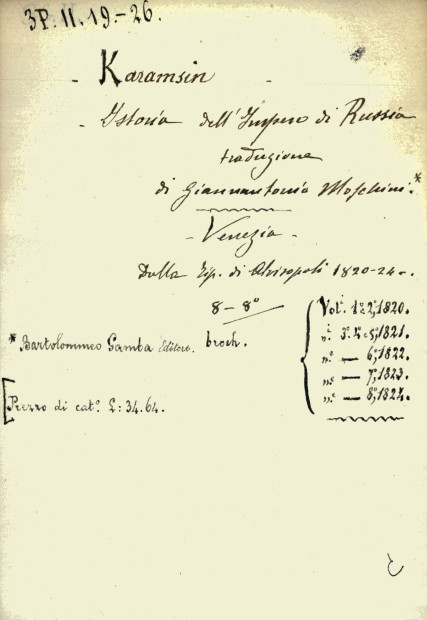 3P. 11. 19-26.
- Karamsin
- Istoria dell'Impero di Russia
traduzione
di Giannantonio Moschini.*
- Venezia -
Dalla Tip. di Alvisopoli 1820-24-.
8 - 8°
broch.
* Bartolommeo Gamba Editore.
[Prezzo di cat.° £: 34. 64.
Vol.i 1° 2°, 1820.
n.i 3°. 4° e 5°, 1821.
n.° — 6°, 1822.
n.° — 7°, 1823.
n.° — 8°, 1824.